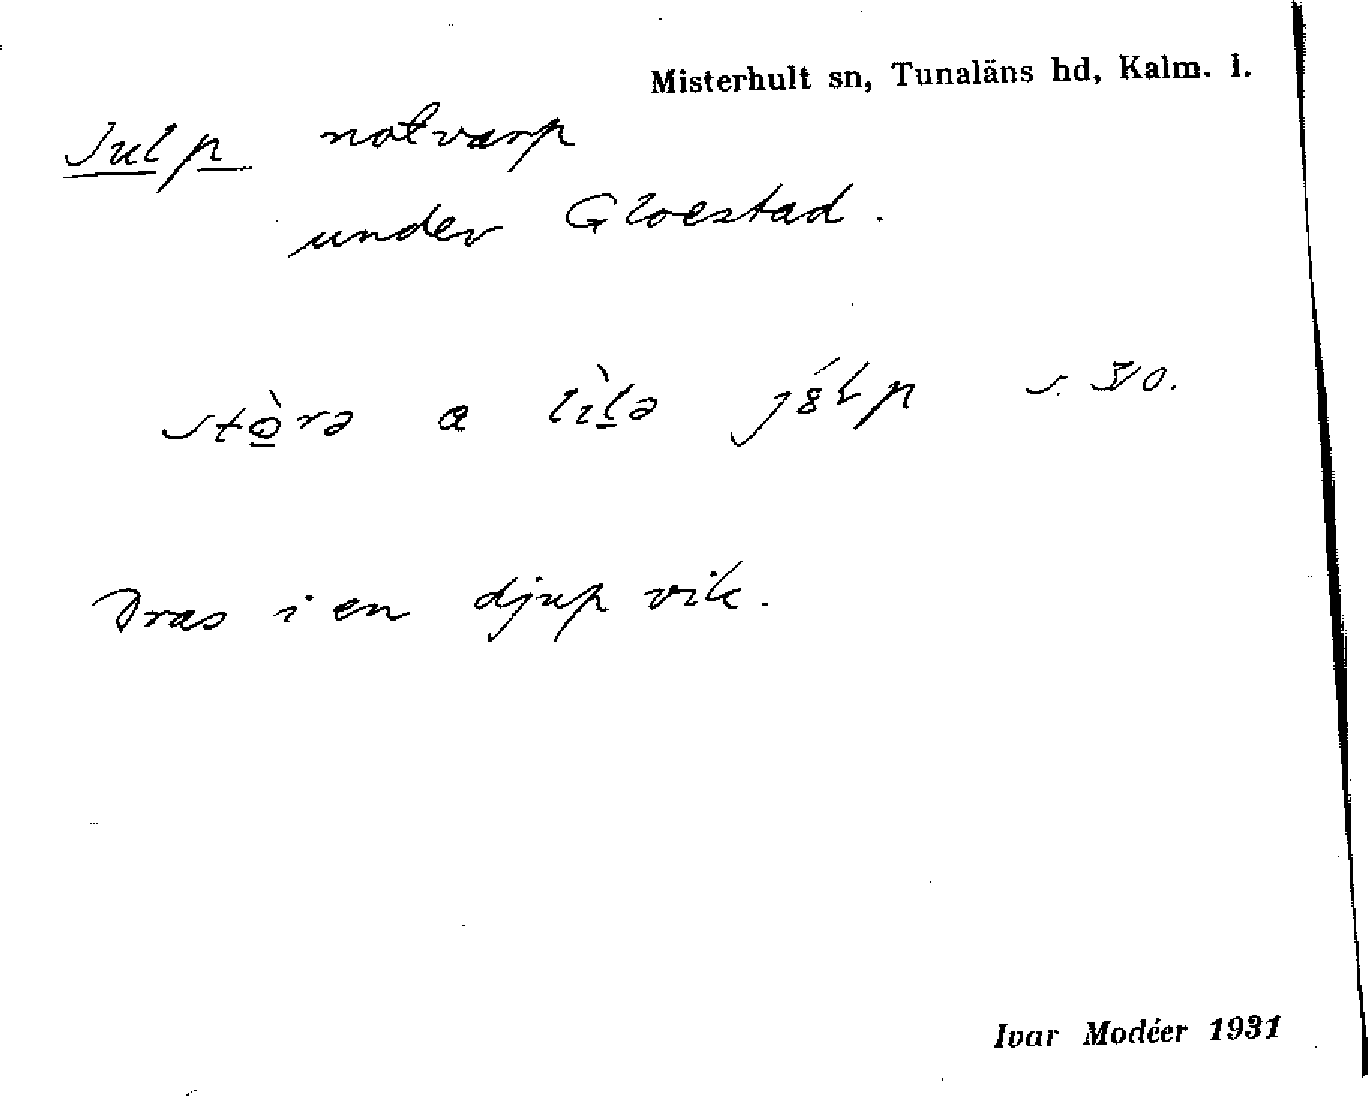 Misterhult sn, Tunaläns hd, Kalm. l.
Julp notvarp
under Gloestad.
Dras i en djup vik.
Ivar Modéer 1931